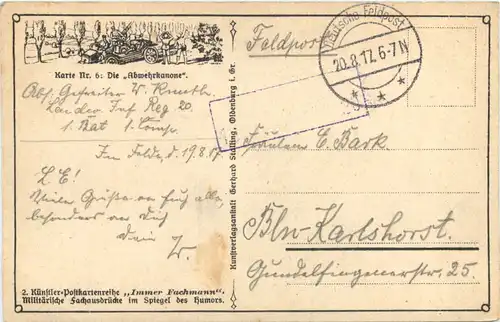 Karte Nr. 6: Die „Abwehrkanone".
Abs. Gefreiter W.
Landw. Inf Reg 20.
1. Bat 1. Comp.
Im Felde, d. 19.8.17
L. E.!
Viele Grüße an Euch alle,
besonders an Dich
Dein W.
2. Künstler-Postkartenreihe „Immer Fachmann".
Militärische Fachausdrücke im Spiegel des Humors.
Kunstverlagsanstalt Gerhard Stalling, Oldenburg i. Gr.
Feldpost
Deutsche Feldpost
20.8.17. 6-7 N
Fräulein E. Bark
Bln-Karlshorst.
Gundelfingenerstr. 25.